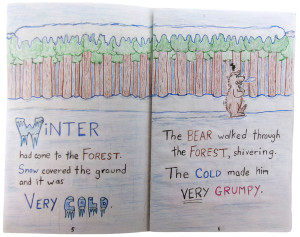 WINTER
had come to the FOREST.
Snow covered the ground
and it was
VERY COLD.
5
The BEAR walked through
the FOREST, shivering.
The COLD made him
VERY GRUMPY.
6